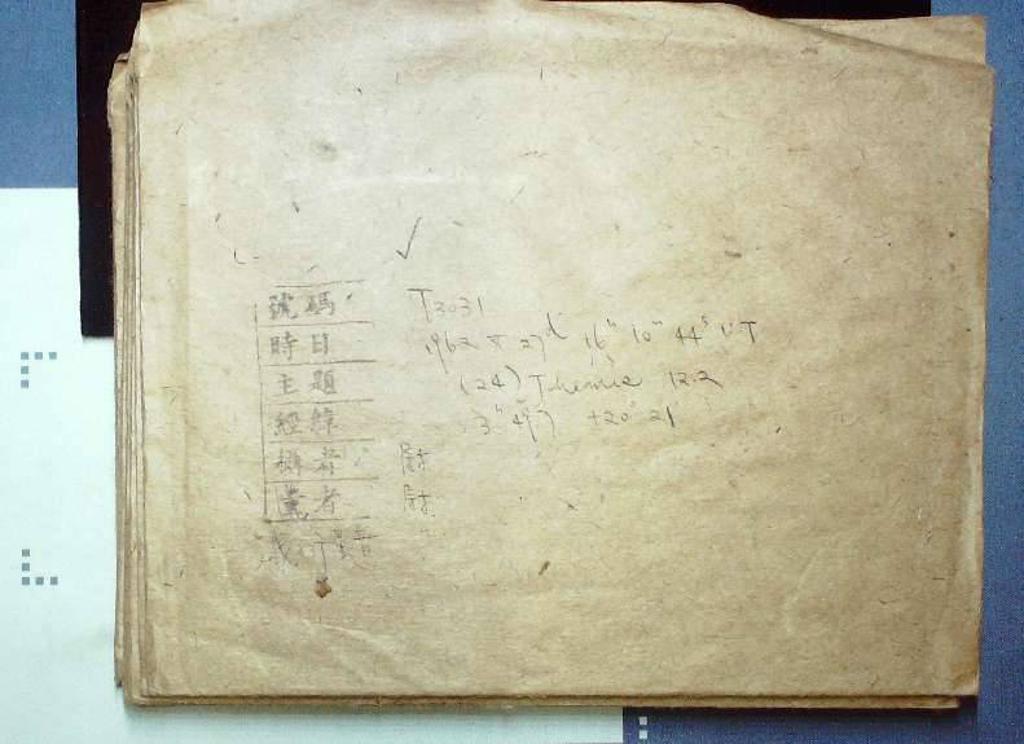 ✓
號碼 T3031
時日 1962 X 27ᵈ 16ʰ 10ᵐ 44ˢ UT
主題 (24) Themis 12.2
經緯 3ʰ 49ᵐ7 +20° 21'
攝者
黨者